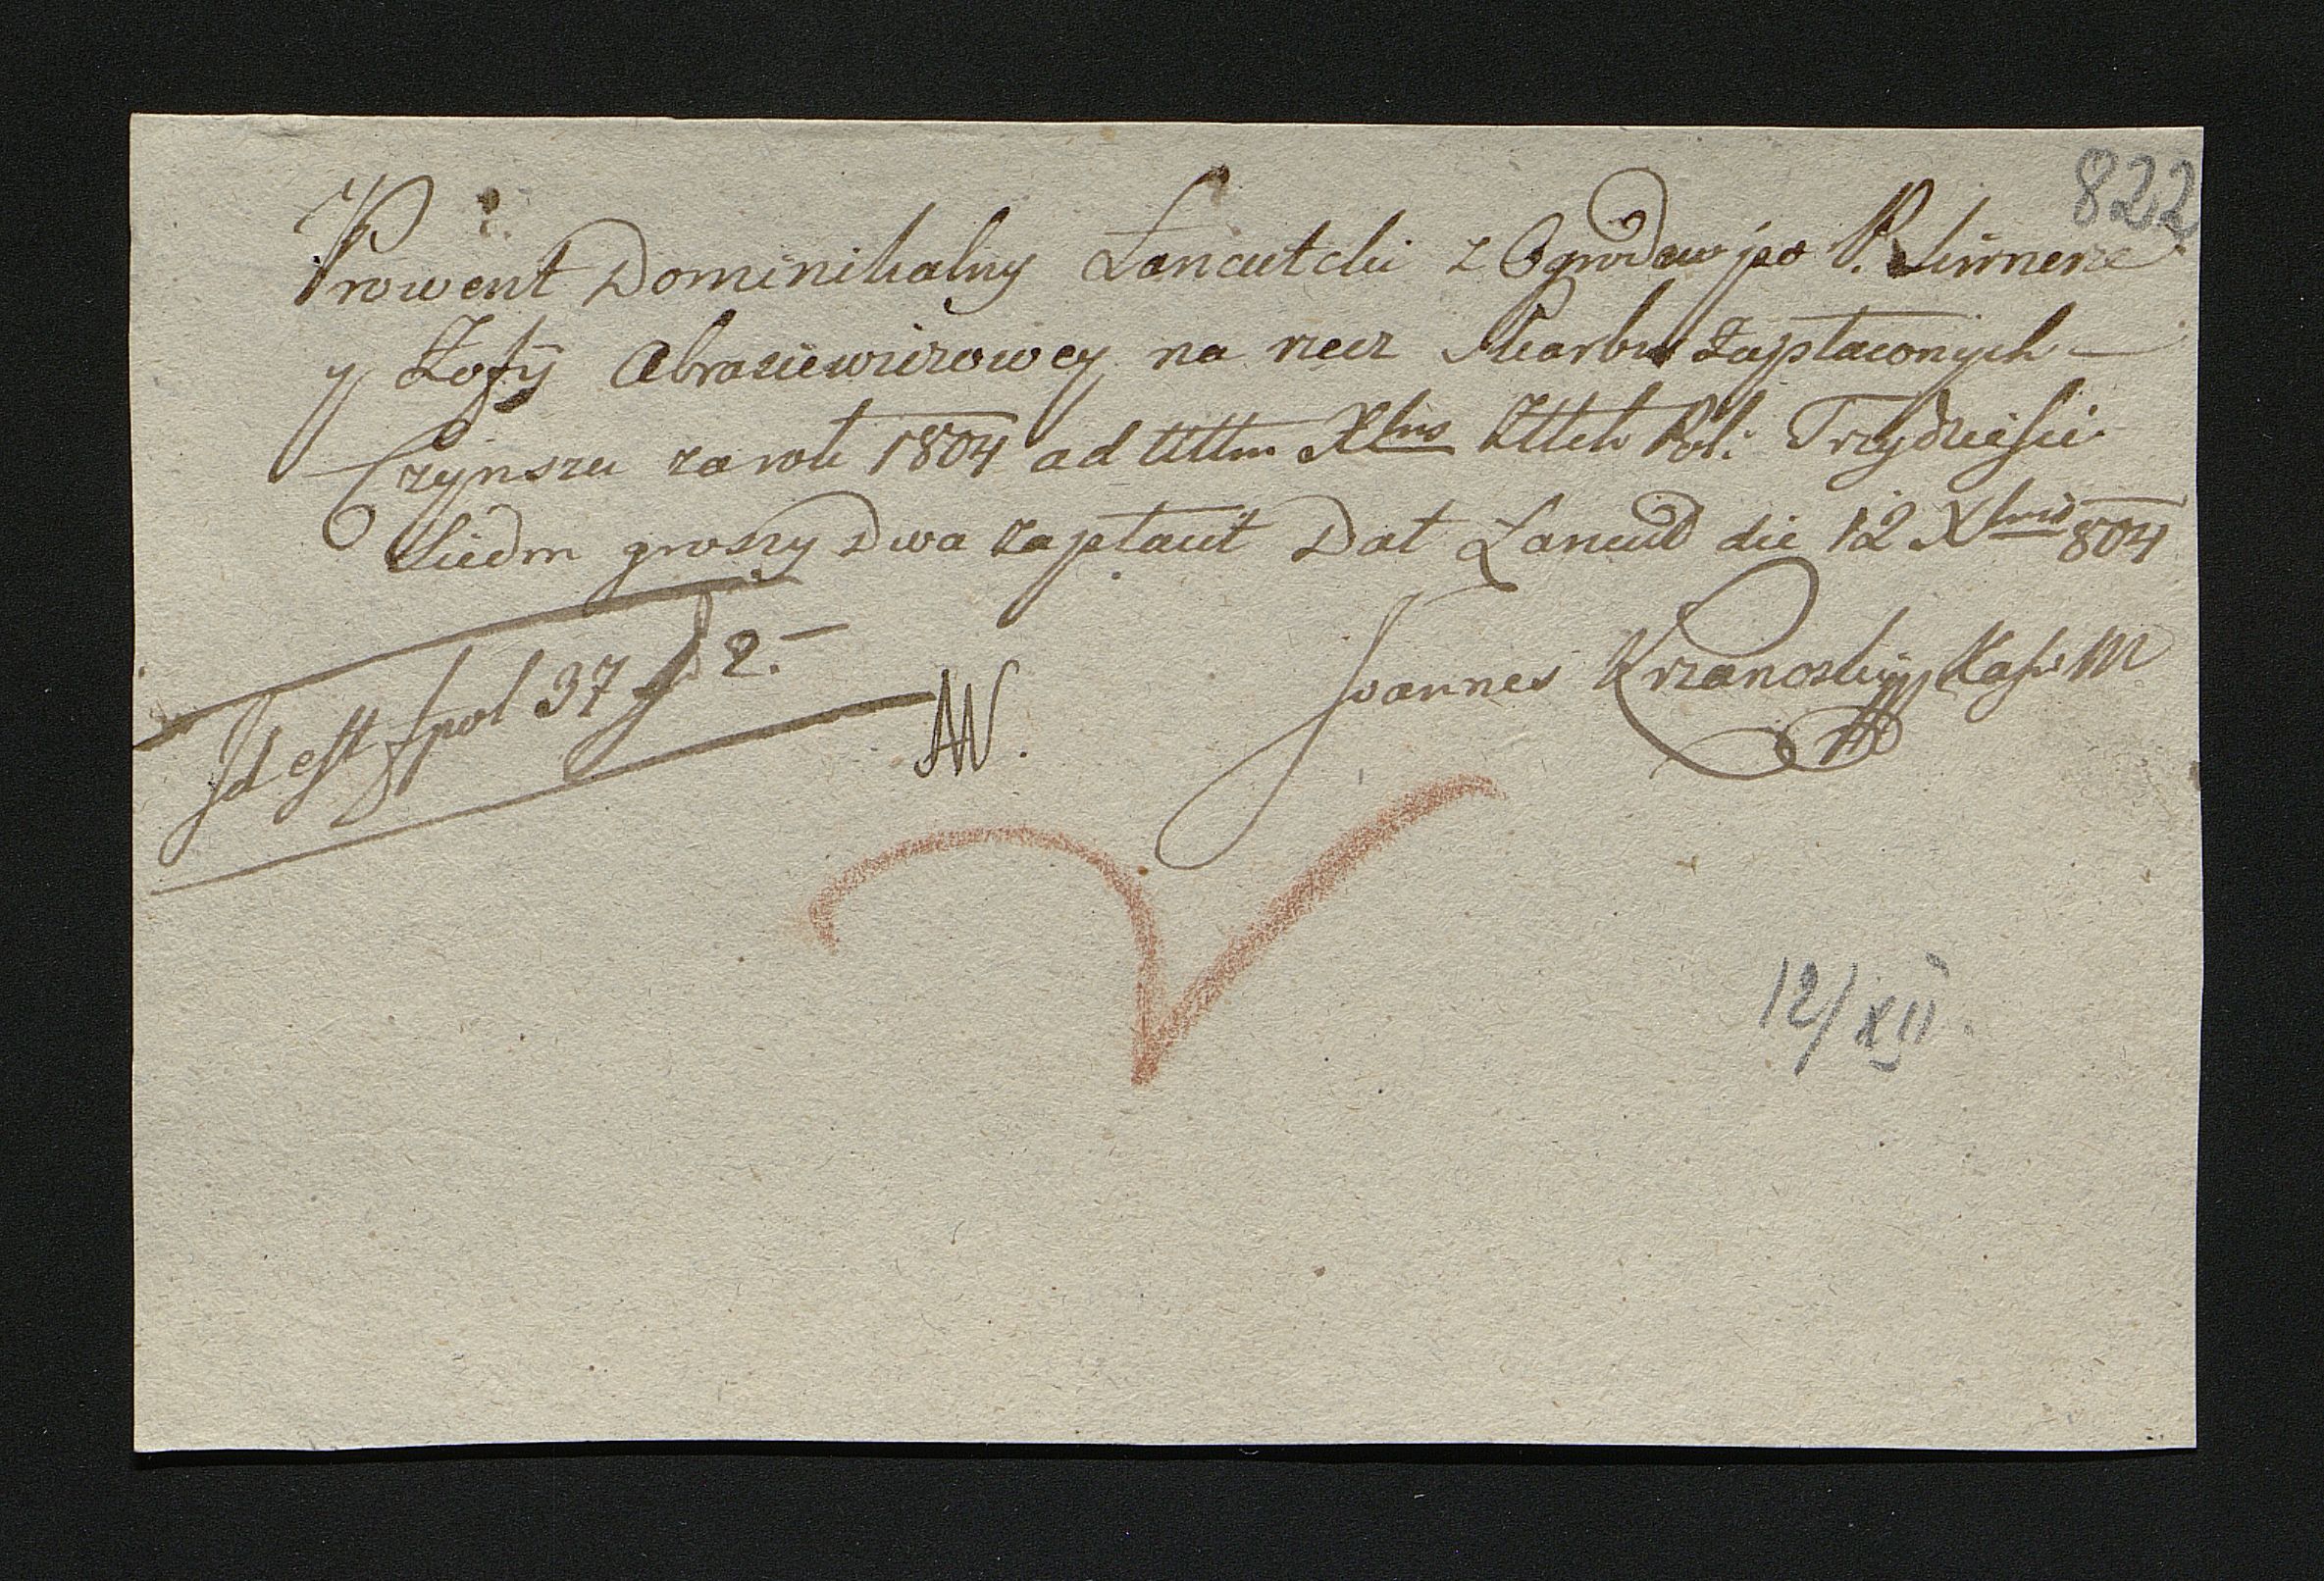 822
Prowent Dominikalny Lancutcki z Ogrodow po P.
y Zofij Abrasiewiczowey na rzecz Skarbu Zapłaconych —
Czynszu za rok 1804 ad Ultm Xbris Złłch Pol: Trzydzieści
Siedm groszy Dwa zapłacił Dat Łancud die 12 Xbris 804
Id est fpol 37 g 2.—
Joannes Krzanoskij Kasr M
AW.
12/XII.